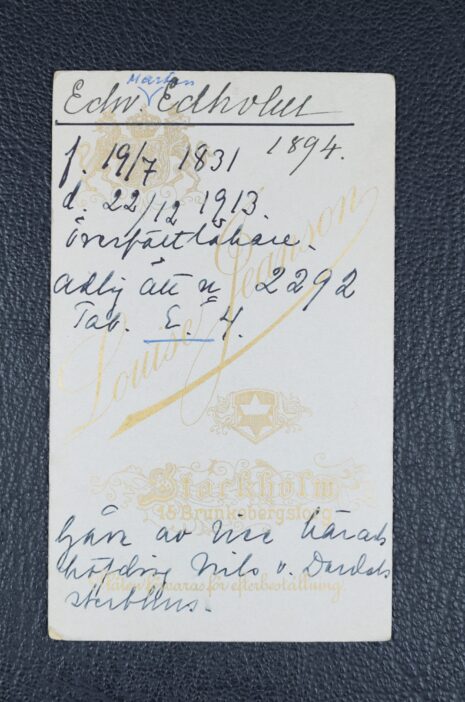 Martin
Edw. Edholm
1894.
f. 19/7 1831
d. 22/12 1913.
Överfältläkare.
Adlig ätt n 2292
Tab. E. 4.
Louise Jeanson
Stockholm
18 Brunkebergstorg
Gåva av vice härads
hövding Nils v. Dardels
sterbhus.
Plåten förvaras för efterbeställning.